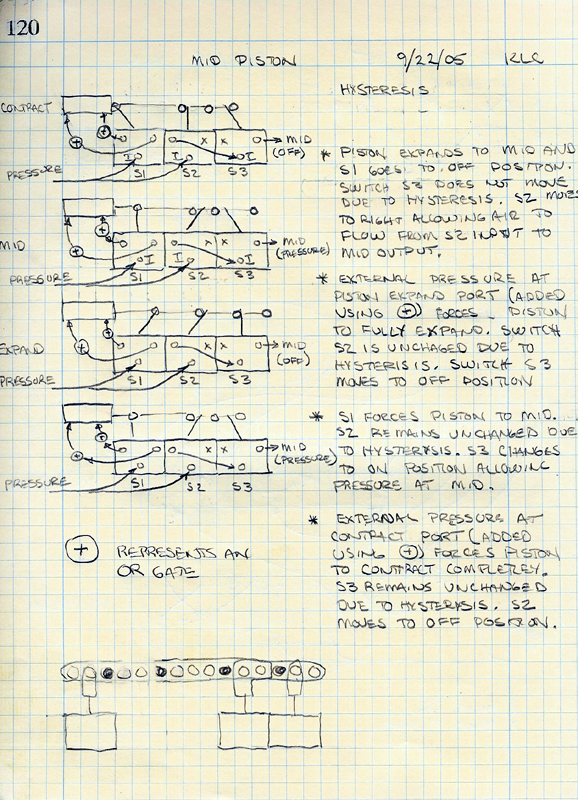 120
MID PISTON 9/22/05 KLC
HYSTERESIS
CONTRACT
MID
(OFF)
PRESSURE
I I I
S1 S2 S3
* PISTON EXPANDS TO MID AND
S1 GOES TO OFF POSITION.
SWITCH S3 DOES NOT MOVE
DUE TO HYSTERESIS. S2 MOVES
TO RIGHT ALLOWING AIR TO
FLOW FROM S2 INPUT TO
MID OUTPUT.
MID
MID
(PRESSURE)
PRESSURE
I I
S1 S2 S3
* EXTERNAL PRESSURE AT
PISTON EXPAND PORT (ADDED
USING +) FORCES PISTON
TO FULLY EXPAND. SWITCH
S2 IS UNCHAGED DUE TO
HYSTERISIS. SWITCH S3
MOVES TO OFF POSITION
EXPAND
MID
(OFF)
PRESSURE
S1 S2 S3
* S1 FORCES PISTON TO MID.
S2 REMAINS UNCHANGED DUE
TO HYSTERYSIS. S3 CHANGES
TO ON POSITION ALLOWING
PRESSURE AT MID.
MID
(PRESSURE)
PRESSURE
S1 S2 S3
* EXTERNAL PRESSURE AT
CONTRACT PORT (ADDED
USING +) FORCES PISTON
TO CONTRACT COMPLETLEY.
S3 REMAINS UNCHANGED
DUE TO HYSTERYSIS. S2
MOVES TO OFF POSITION.
+ REPRESENTS AN
OR GATE